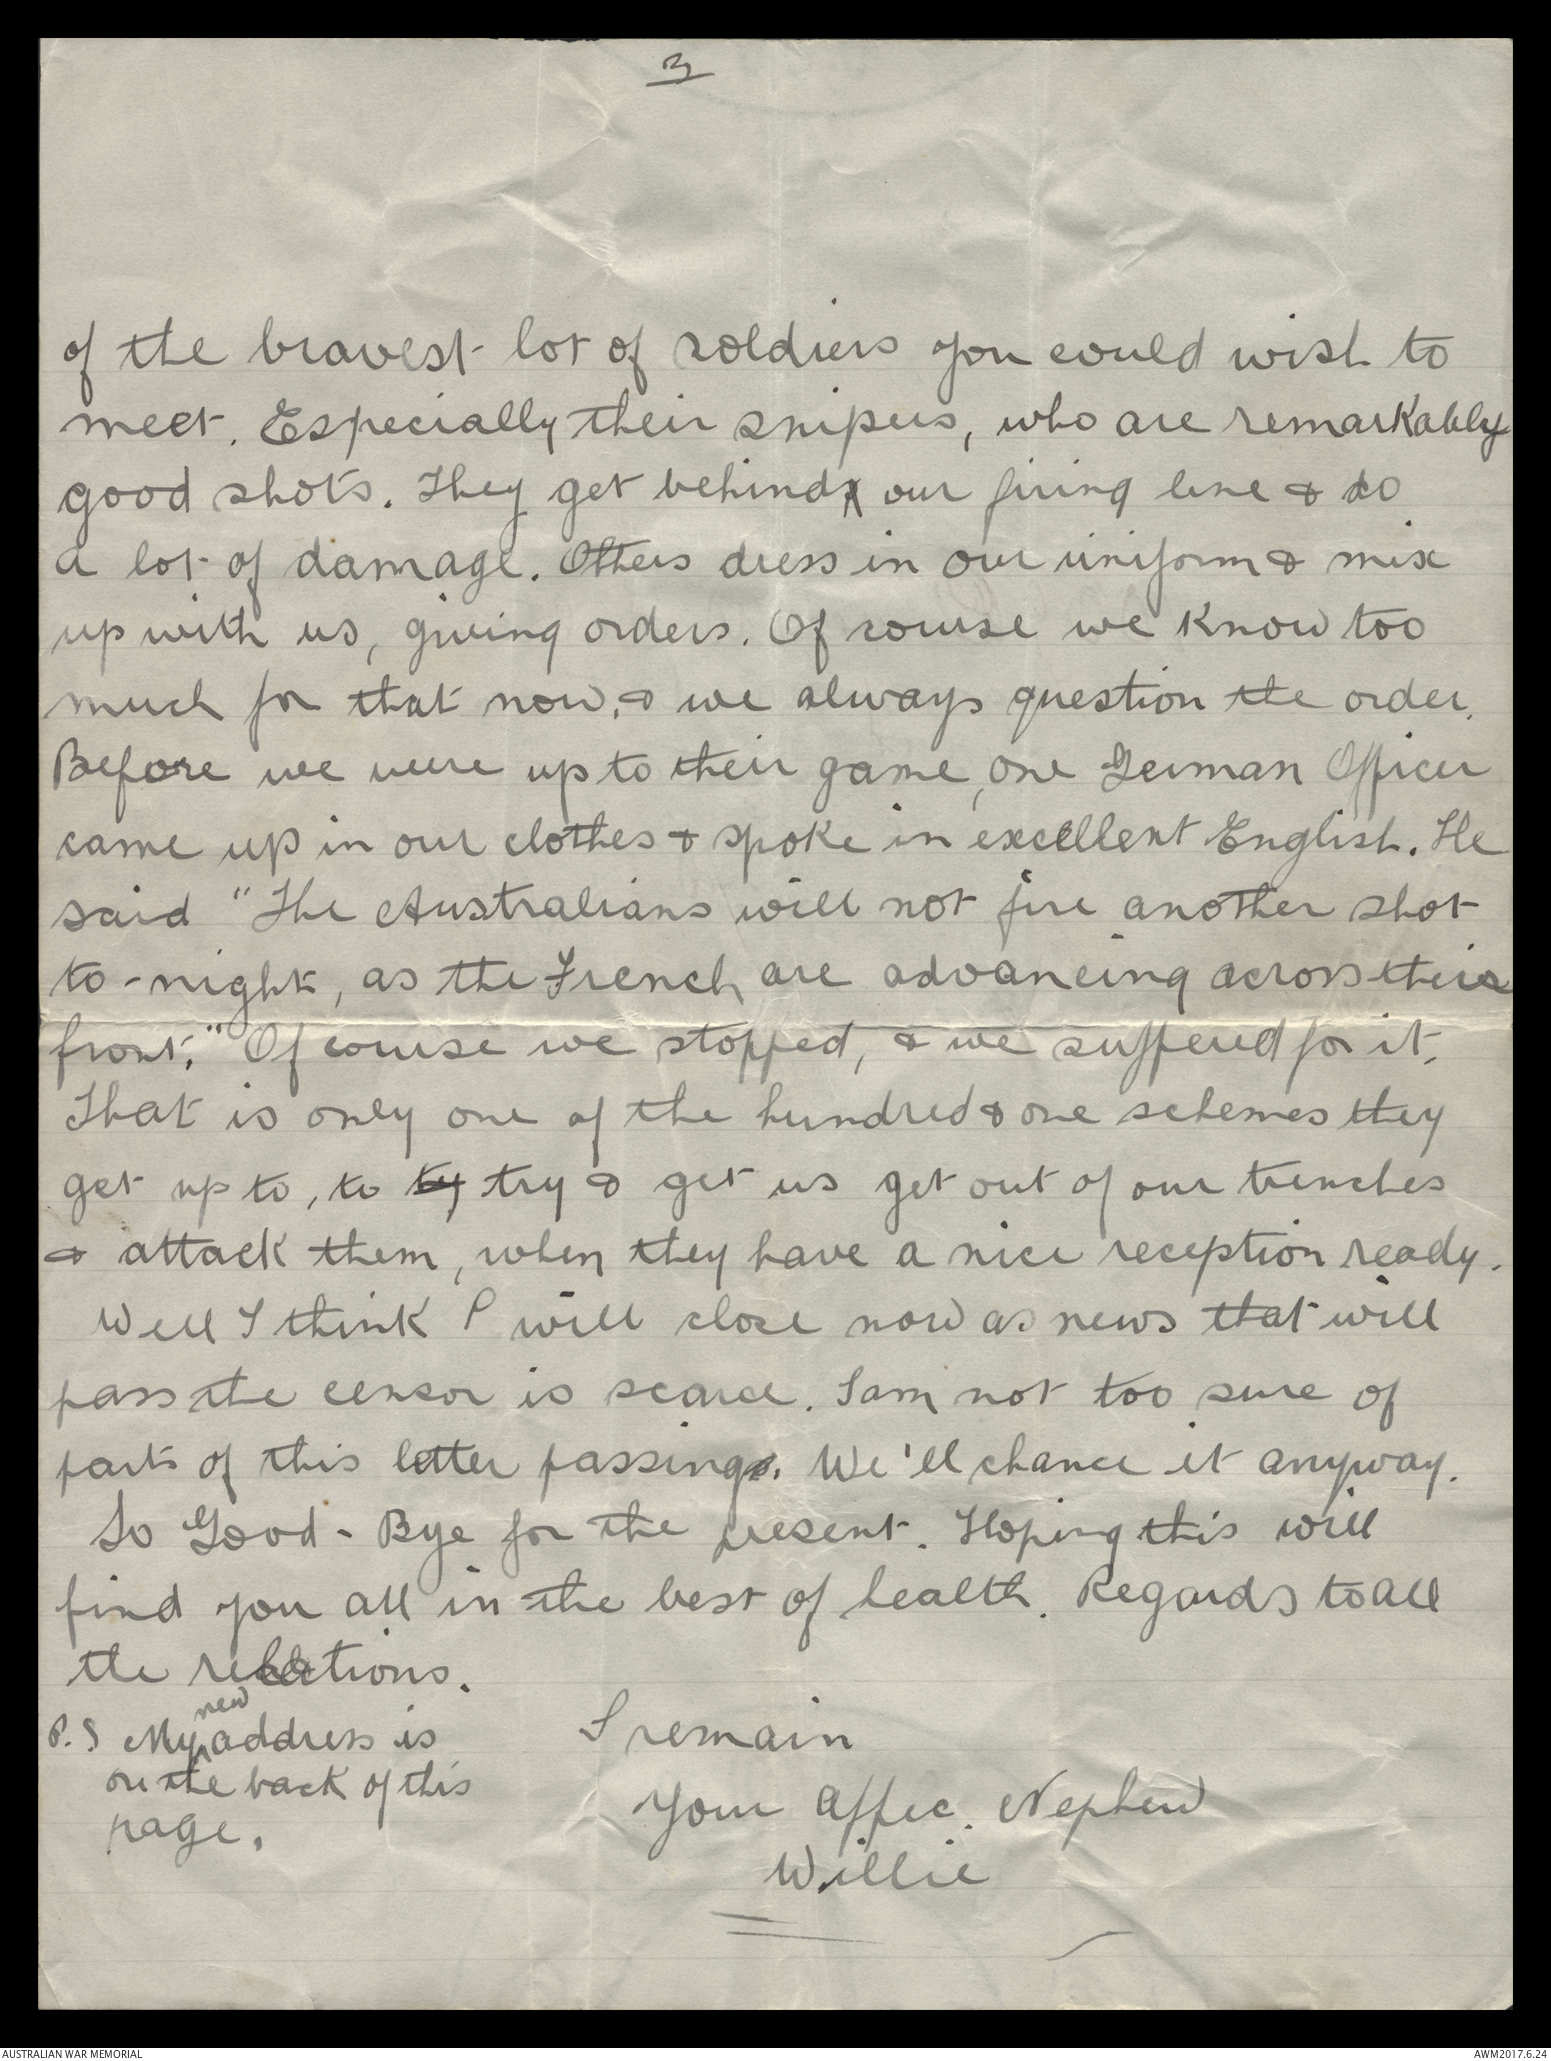 3
of the bravest lot of soldiers you could wish to
meet. Especially their snipers, who are remarkably
good shots. They get behind our firing line & do
a lot of damage. Others dress in our uniform & mix
up with us, giving orders. Of course we know too
much for that now, & we always question the order.
Before we were up to their game, one German Officer
came up in our clothes & spoke in excellent English. He
said "The Australians will not fire another shot
to-night, as the French are advancing across their
front." Of course we stopped, & we suffered for it.
That is only one of the hundred & one schemes they
get up to, to ty try & get us get out of our trenches
& attack them, when they have a nice reception ready.
Well I think I will close now as news that will
pass the censor is scarce. I am not too sure of
parts of this letter passing. We'll chance it anyway.
So Good-Bye for the present. Hoping this will
find you all in the best of health. Regards to all
the relations.
new
P.S My address is
on the back of this
page.
I remain
Your Affec. Nephew
Willie
AUSTRALIAN WAR MEMORIAL
AWM2017.6.24